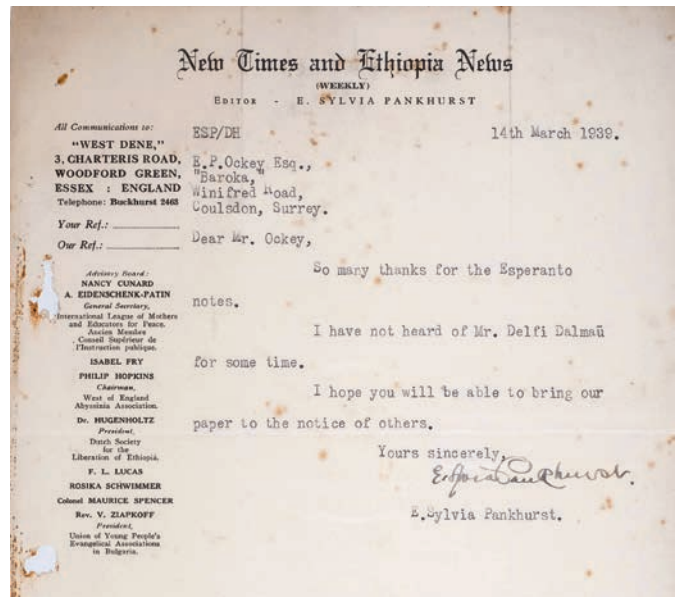 New Times and Ethiopia News
(WEEKLY)
EDITOR - E. SYLVIA PANKHURST
All Communications to:
"WEST DENE,"
3, CHARTERIS ROAD,
WOODFORD GREEN,
ESSEX : ENGLAND
Telephone: Buckhurst 2463
Your Ref.:
Our Ref.:
Advisory Board:
NANCY CUNARD
A. EIDENSCHENK-PATIN
General Secretary,
International League of Mothers
and Educators for Peace.
Ancien Membre
Conseil Supérieur de
l'Instruction publique.
ISABEL FRY
PHILIP HOPKINS
Chairman,
West of England
Abyssinia Association.
Dr. HUGENHOLTZ
President,
Dutch Society
for the
Liberation of Ethiopia.
F. L. LUCAS
ROSIKA SCHWIMMER
Colonel MAURICE SPENCER
Rev. V. ZIAPKOFF
President,
Union of Young People's
Evangelical Associations
in Bulgaria.
ESP/DH 14th March 1939.
E.P.Ockey Esq.,
"Baroka,"
Winifred Road,
Coulsdon, Surrey.
Dear Mr. Ockey,
So many thanks for the Esperanto
notes.
I have not heard of Mr. Delfi Dalmaŭ
for some time.
I hope you will be able to bring our
paper to the notice of others.
Yours sincerely,
E. Sylvia Pankhurst.
E.Sylvia Pankhurst.